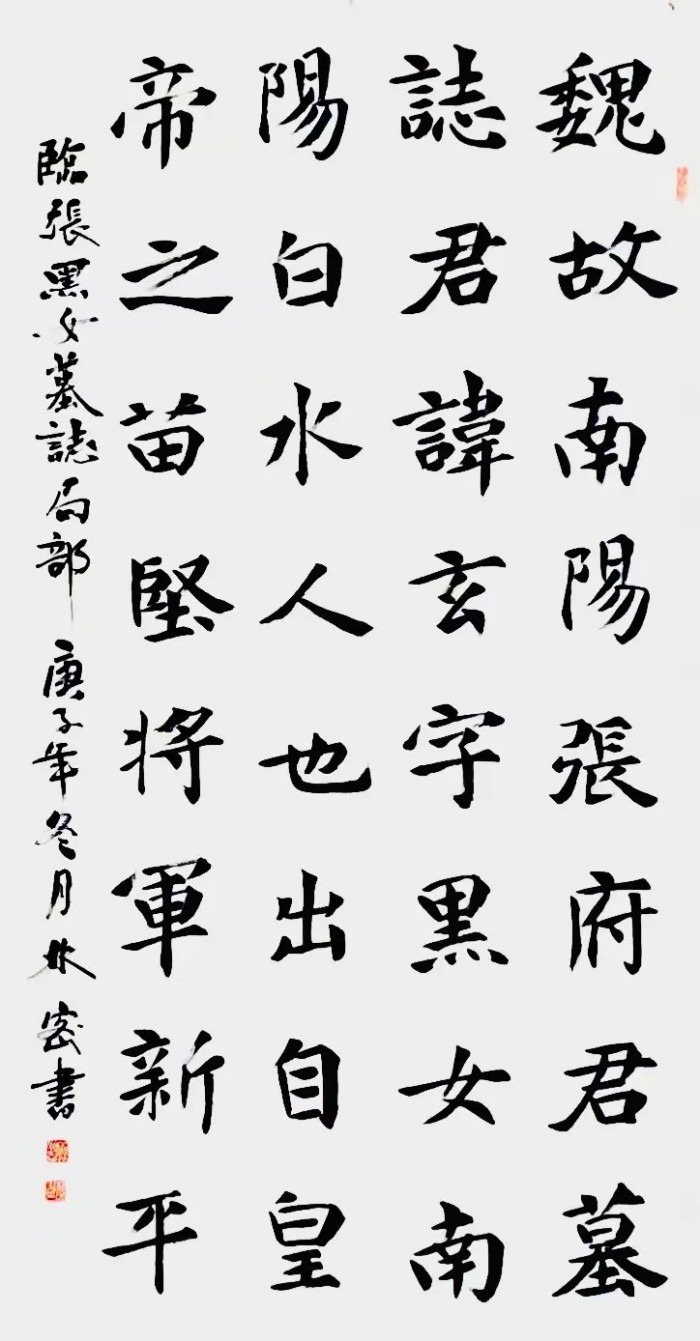 魏故南陽張府君墓
誌君諱玄字黑女南
陽白水人也出自皇
帝之苗堅將軍新平
臨張黑女墓誌局部 庚子年冬月林密書